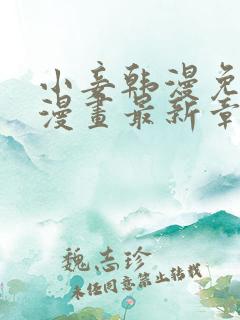 小妾韩漫免
漫畫最新章
魏志珍
未经同意禁止转载